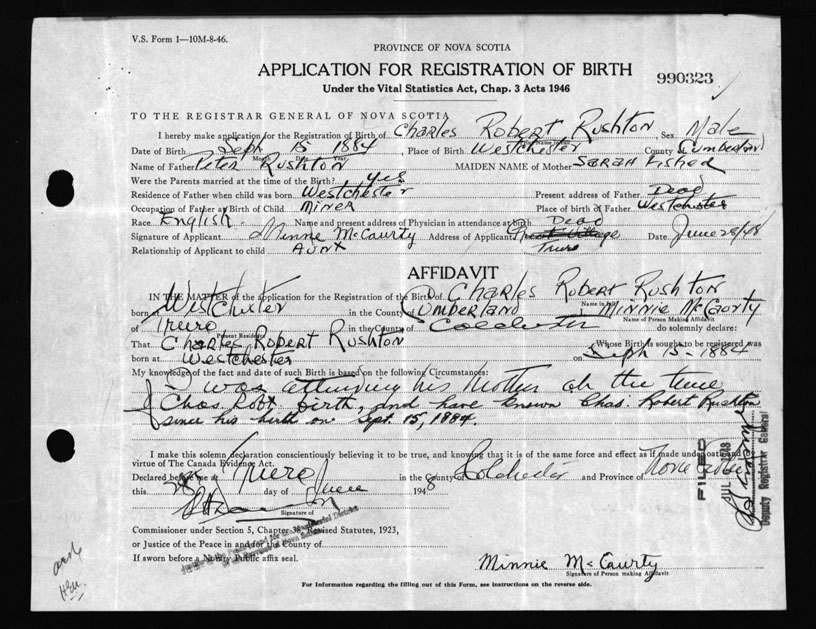 V.S. Form 1—10M-8-46.
PROVINCE OF NOVA SCOTIA
APPLICATION FOR REGISTRATION OF BIRTH
990323
Under the Vital Statistics Act, Chap. 3 Acts 1946
TO THE REGISTRAR GENERAL OF NOVA SCOTIA
I hereby make application for the Registration of Birth of Charles Robert Rushton Sex Male
Date of Birth Sept 15 1884, Place of Birth Westchester County Cumberland
Name of Father Peter Rushton MAIDEN NAME of Mother Sarah
Were the Parents married at the time of the Birth? yes
Residence of Father when child was born Westchester Present address of Father Dead
Occupation of Father at Birth of Child Miner Place of birth of Father Westchester
Race English Name and present address of Physician in attendance at birth Dead
Signature of Applicant Minnie McCaurty Address of Applicant Truro Date June 28/48
Relationship of Applicant to child Aunt
AFFIDAVIT
IN THE MATTER of the application for the Registration of the Birth of Charles Robert Rushton
Name in full
born at Westchester in the County of Cumberland I, Minnie McCaorty
Name of Person Making Affidavit
of Truro in the County of Colchester do solemnly declare:
Present Residence
That Charles Robert Rushton Whose Birth is sought to be registered was
born at Westchester on Sept 15-1884
My knowledge of the fact and date of such Birth is based on the following Circumstances:
I was attending his Mother at the time
of Chas. Robt birth, and have known Chas. Robert Rushton
since his birth on Sept. 15, 1884.
I make this solemn declaration conscientiously believing it to be true, and knowing that it is of the same force and effect as if made under oath and by
virtue of The Canada Evidence Act.
Declared before me at Truro in the County of Colchester and Province of Nova Scotia
this 28 day of June 1948
Signature of
Commissioner under Section 5, Chapter 38, Revised Statutes, 1923,
or Justice of the Peace in and for the County of
If sworn before a Notary Public affix seal.
Minnie McCaurty
Signature of Person making Affidavit
For Information regarding the filling out of this Form, see instructions on the reverse side.
FILED
JUL 1948
Deputy Registrar General